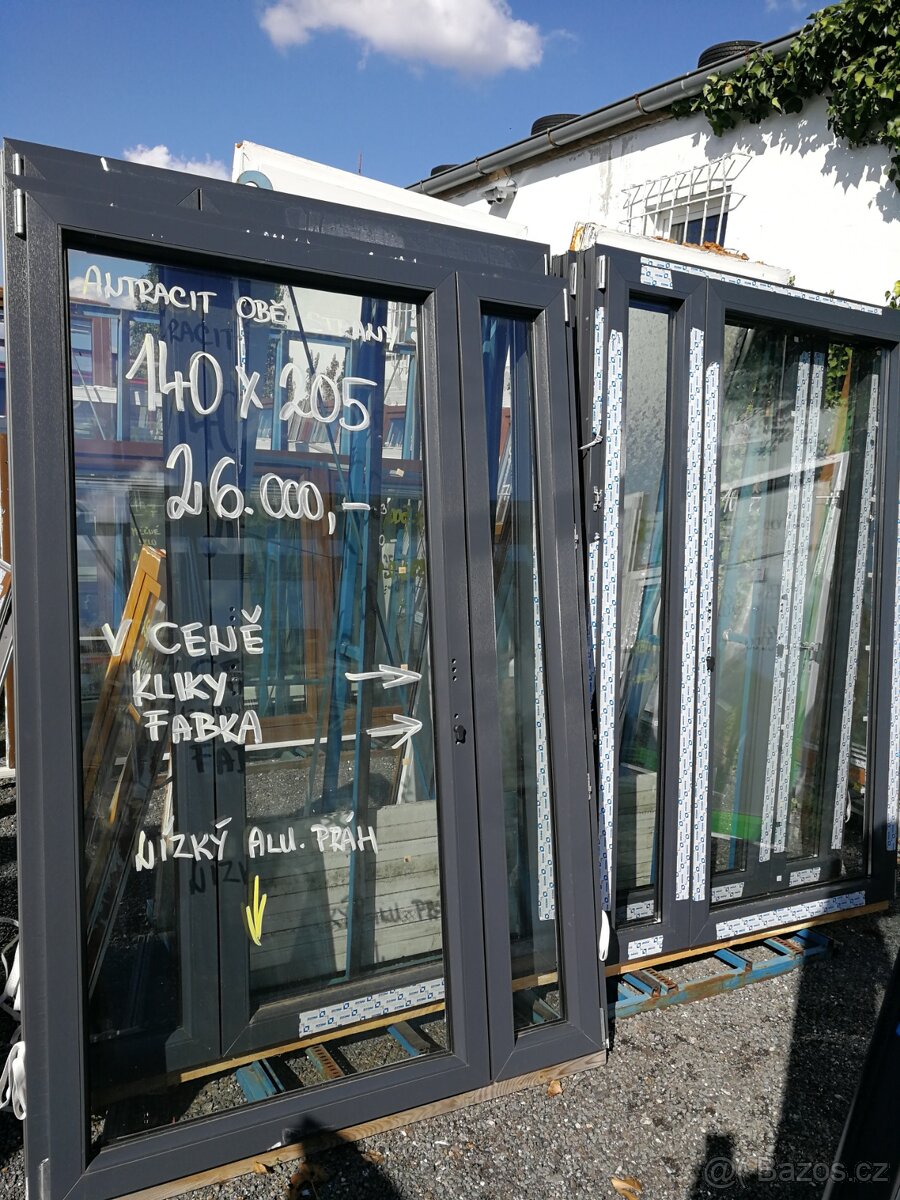 ANTRACIT OBĚ STRANY
140 x 205
26.000,-
V CENĚ
KLIKY
FABKA
NÍZKÝ ALU. PRÁH
@ Bazos.cz